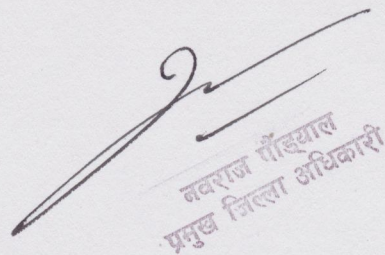 नवराज गौंड्याल
प्रमुख जिल्ला अधिकारी